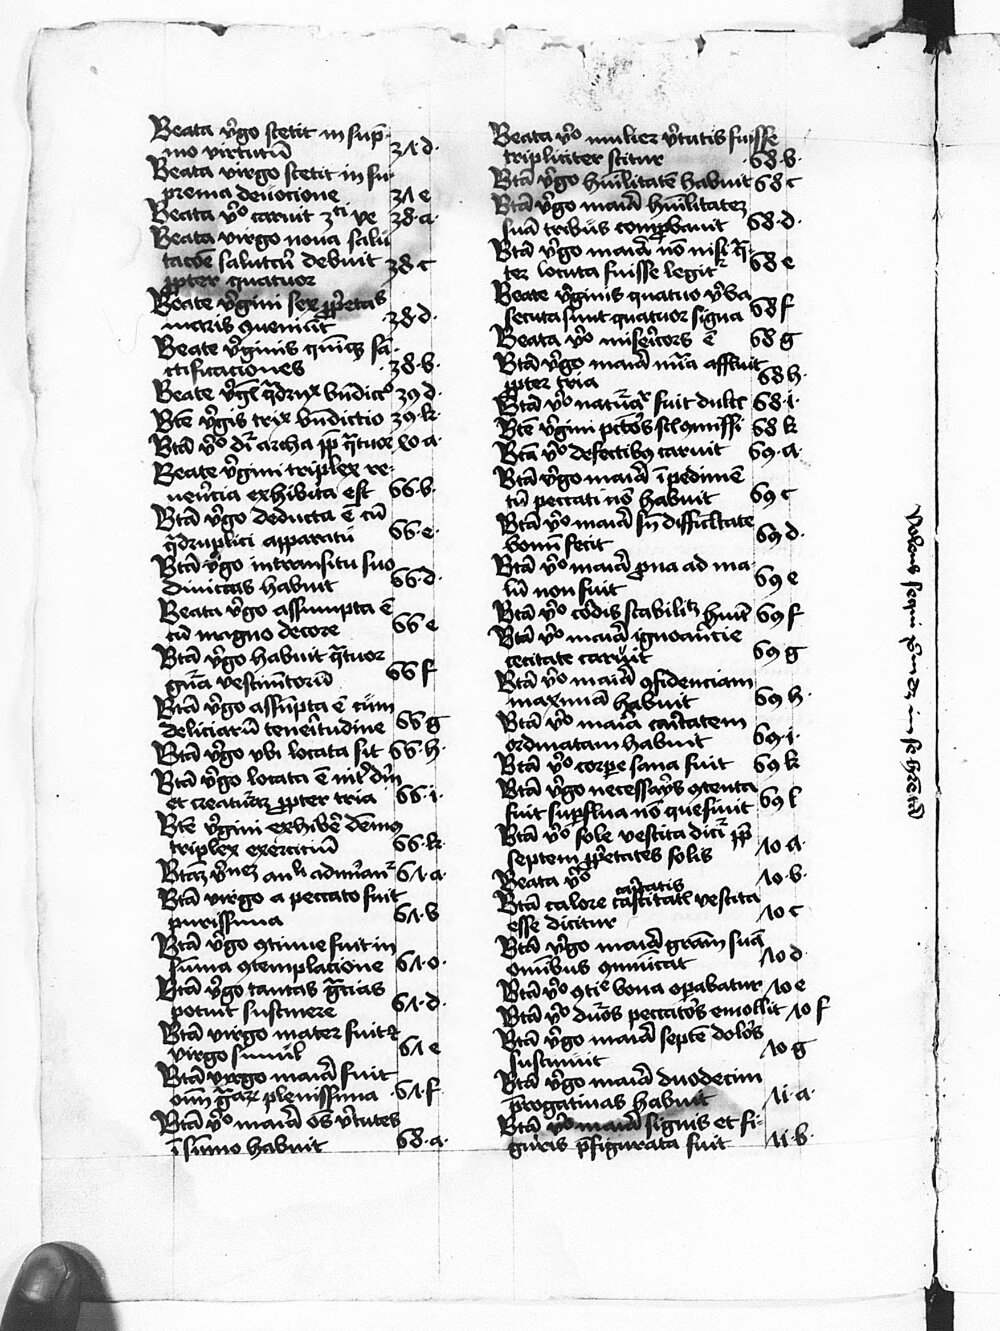 Beata v̄go stetit in sup̄
mo virtutū 3ʌ d·
Beata virgo stetit in su
prema deuocione 3ʌ e
Beata v̊o caruit 3ti ve 38·a·
Beata virgo noua salu
tacōe salutari debuit 38 c
ꝓpter quatuor
Beate v̄gini sex ꝓp̄etas
maris ꝯueniūt 38·d·
Beate v̄ginis qui͞qꝫ sā
ctificaciones 38·b·
Beate v̄gīs q̄druplex bn̄dicc̄o 39 d·
Btē v̄gīs triplex bn̄dictio 39·k·
Btā v̊o dr̄ archa ꝓp̄ q̄tuor ꝛo·a·
Beate v̄gini triplex re
uerētia exhibita est 66·b·
Btā v̄go deducta ē cū
q̄druplici apparatu 66·c·
Btā v̄go in transitu suo
diuicias habuit 66·d·
Beata v̄go assumpta ē
cū magno decore 66 e
Btā v̄go habuit q̄tuor
gn̄a vestimētorū 66 f
Btā v̄go assūpta ē cum
deliciarū teneritudine 66 g
Btā v̄go vbi locata sit 66·h·
Btā v̄go locata ē int̄ dn̄m
et creaturaꝫ ꝓpter tria 66·i·
Btē v̄gini exhibē dem͞ꝰ
triplex exercitiū 66·k·
Btāꝫ v̄gineꝫ an̄li admirant̄ 6ʌ·a·
Btā virgo a peccato fuit
purissima 6ʌ·b
Btā v̄go ꝯtinue fuit in
sūma ꝯtemplacione 6ʌ·c·
Btā v̄go tantas gr̄cias
potuit sustinere 6ʌ·d·
Btā virgo mater fuit ⁊
virgo simul 6ʌ e
Btā virgo maria fuit
om̄ gr̄aꝝ plenissima 6ʌ·f·
Btā v̊o maria oēs v̄tutes
ī sūmo habuit 68·a·
Beata v̊o mulier v̄tutis fuisse
tripliciter scitur 68·b·
Btā v̄go hūilitatē habuit 68 c
Btā v̄go maria hūilitateꝫ
suā tribus comꝓbauit 68·d·
Btā v̄go maria nō nisi q̄
ter locuta fuisse legit̄ 68 e
Beate v̄ginis quatuo v̄ba
secuta sunt quatuor signa 68 f
Beata v̊o misericors ē 68 g
Btā v̄go maria nr̄a affuit
ꝓpter tria 68 h·
Btā v̊o naturaꝉr fuit dulc̄ 68·i·
Btē v̄gini pctōs sc̄ ꝯmissi 68 k
Btā v̊o defectibꝰ caruit 69·a·
Btā v̄go maria īpedimē
tū peccati nō habuit 69 c
Btā v̊o maria sn̄ difficultate
bonū fecit 69 d·
Btā v̊o maria ꝓna ad ma
lū non fuit 69 e
Btā v̊o cordis stabilitꝫ hūit 69 f
Btā v̊o maria ignorātie
cecitate caruit 69 g
Btā v̊o maria ꝯfidenciam
maximā habuit 69 h·
Btā v̊o maria caritatem
ordinatam habuit 69·i·
Btā v̊o corpe sana fuit 69 k
Btā v̄go necessarijs ꝯtenta
fuit supflua nō quesiuit 69 l
Btā v̊o sole vestita dicit̄ ꝓp̄
septem ꝓp̄etates solis ʌo a·
Beata v̊o ʌo·b·
caritatis
Btā calore castitatꝭ vestita
esse dicitur ʌo c
Btā v̄go maria gr̄am suā
omībus ꝯmūicat ʌo d·
Btā v̊o ꝯtīe bona opabatur ʌo e
Btā v̊o duros peccatōs emollit ʌo f
Btā v̄go maria septē dolōs
sustinuit ʌo g
Btā v̄go maria duodecim
p̄rogatiuas habuit ʌʌ·a·
Btā v̊o maria signis et fi
guris p̄figurata fuit ʌʌ·b·
Volens sequi